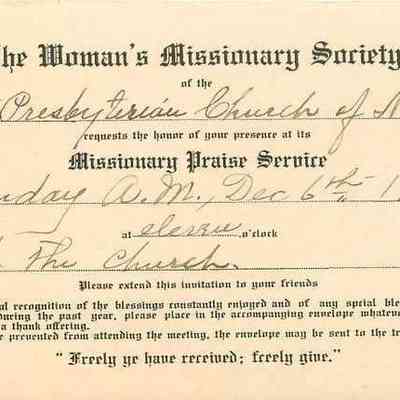 he Woman's Missionary Society
of the
Presbyterian Church of N
requests the honor of your presence at its
Missionary Praise Service
nday A.M., Dec 6th 1
at eleven o'clock
The Church.
Please extend this invitation to your friends
al recognition of the blessings constantly enjoyed and of any special ble
during the past year, please place in the accompanying envelope whateve
a thank offering.
e prevented from attending the meeting, the envelope may be sent to the tr
"Freely ye have received; freely give."